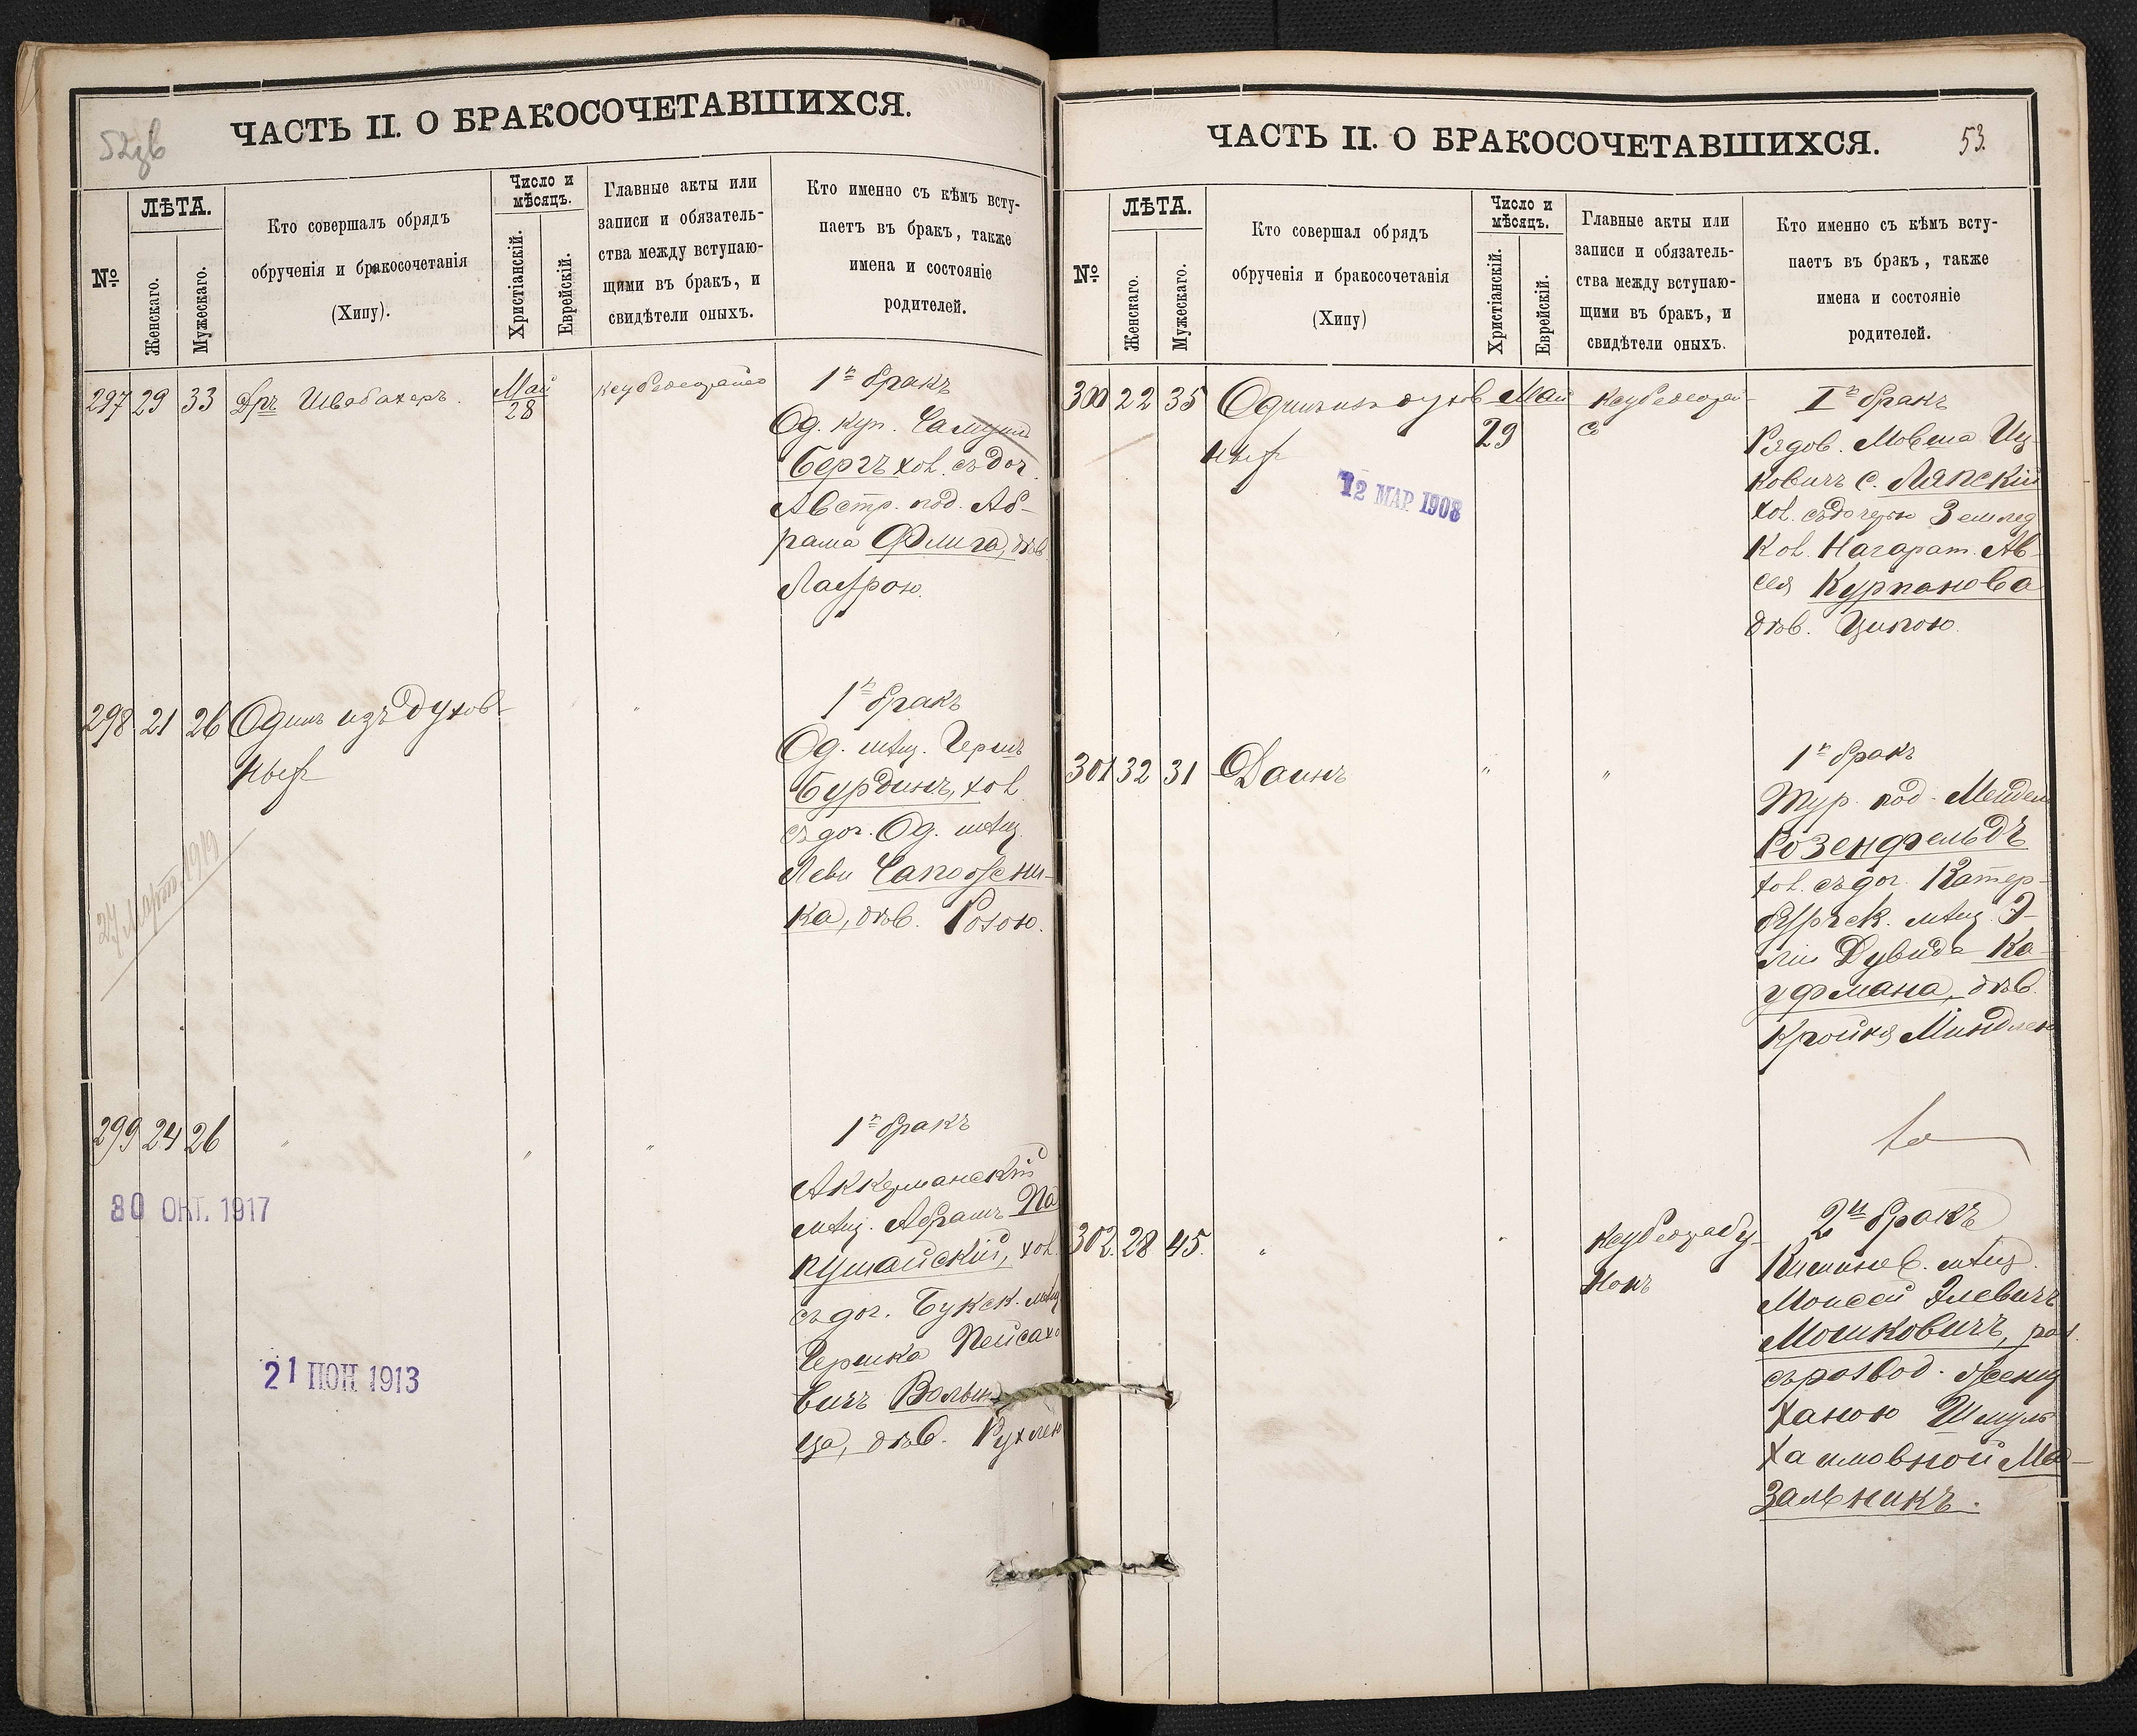 ЧАСТЬ II. О БРАКОСОЧЕТАВШИХСЯ.
№
ЛѢТА.
Женскаго.
Мужескаго.
Кто совершалъ обрядъ
обрученія и бракосочетанія
(Хипу).
Число и
мѣсяцъ.
Христіанскій.
Еврейскій.
Главные акты или
записи и обязатель-
ства между вступаю-
щими въ бракъ, и
свидѣтели оныхъ.
Кто именно съ кѣмъ всту-
паетъ въ бракъ, также
имена и состояніе
родителей.
297 29 33 Дръ Швабахеръ.
Май
28
1й бракъ
Од. куп. Самуилъ
Бергъ хол. съ доч.
Австр. под. Аб-
рама Флига, дѣв.
Лаурою.
298 21 26 Одинъ изъ духов-
ныхъ
27 Март. 1919
1й бракъ
Од. мѣщ. Гершъ
Бурдинъ, хол.
съ доч. Од. мѣщ.
Леви Сапожни-
ка, дѣв. Розою.
299 24 26 " " "
30 ОКТ. 1917
21 ІЮН 1913
1й бракъ
Аккерманскій
мѣщ. Абрамъ Па
пушойскій, хол.
съ доч. Букск. мѣщ
Гершка Пейсахо
вичъ Волын-
ца, дѣв. Рухлею
ЧАСТЬ II. О БРАКОСОЧЕТАВШИХСЯ.
53.
№
ЛѢТА.
Женскаго.
Мужескаго.
Кто совершал обрядъ
обрученія и бракосочетанія
(Хипу)
Число и
мѣсяцъ.
Христіанскій.
Еврейскій.
Главные акты или
записи и обязатель-
ства между вступаю-
щими въ бракъ, и
свидѣтели оныхъ.
Кто именно съ кѣмъ всту-
паетъ въ бракъ, также
имена и состояніе
родителей.
300 22 35 Одинъ изъ духов
ныхъ
Май
29
12 МАР 1908
Iй бракъ
Рядов. Мовша Иц-
ковичъ с. Ляпскій
хол. съ дочерью Землед
Кол. Нагарат. Ав-
сея Курпанова
дѣв. Ципою.
301 32 31 Даинъ " "
1й бракъ
Тур. под. Мендель
Розенфельдъ
хол. съ доч. Катер-
бургск. мѣщ. Э-
ли Дувида Ка-
уфмана, дѣв.
Кройня Миндлею
302. 28 45. " "
2й бракъ
Кишинев. мѣщ.
Моисей Элевичъ
Мошковичъ, раз.
съ развод. женщ
Ханою Шмуль
Хаимовной Ма-
зальникъ.